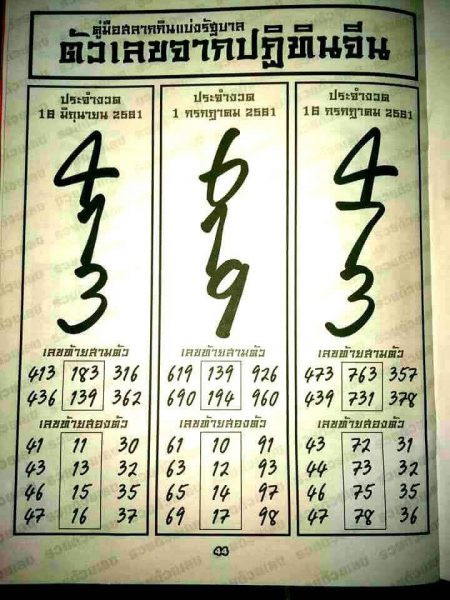 คู่มือสลากกินแบ่งรัฐบาล
ตัวเลขจากปฏิทินจีน
ประจำงวด
16 มิถุนายน 2561
4
1
3
เลขท้ายสามตัว
413 183 316
436 139 362
เลขท้ายสองตัว
41 11 30
43 13 32
46 15 35
47 16 37
ประจำงวด
1 กรกฎาคม 2561
6
1
9
เลขท้ายสามตัว
619 139 926
690 194 960
เลขท้ายสองตัว
61 10 91
63 12 93
65 14 97
69 17 98
ประจำงวด
16 กรกฎาคม 2561
4
7
3
เลขท้ายสามตัว
473 763 357
439 731 378
เลขท้ายสองตัว
43 72 31
44 73 32
46 75 35
47 78 36
44